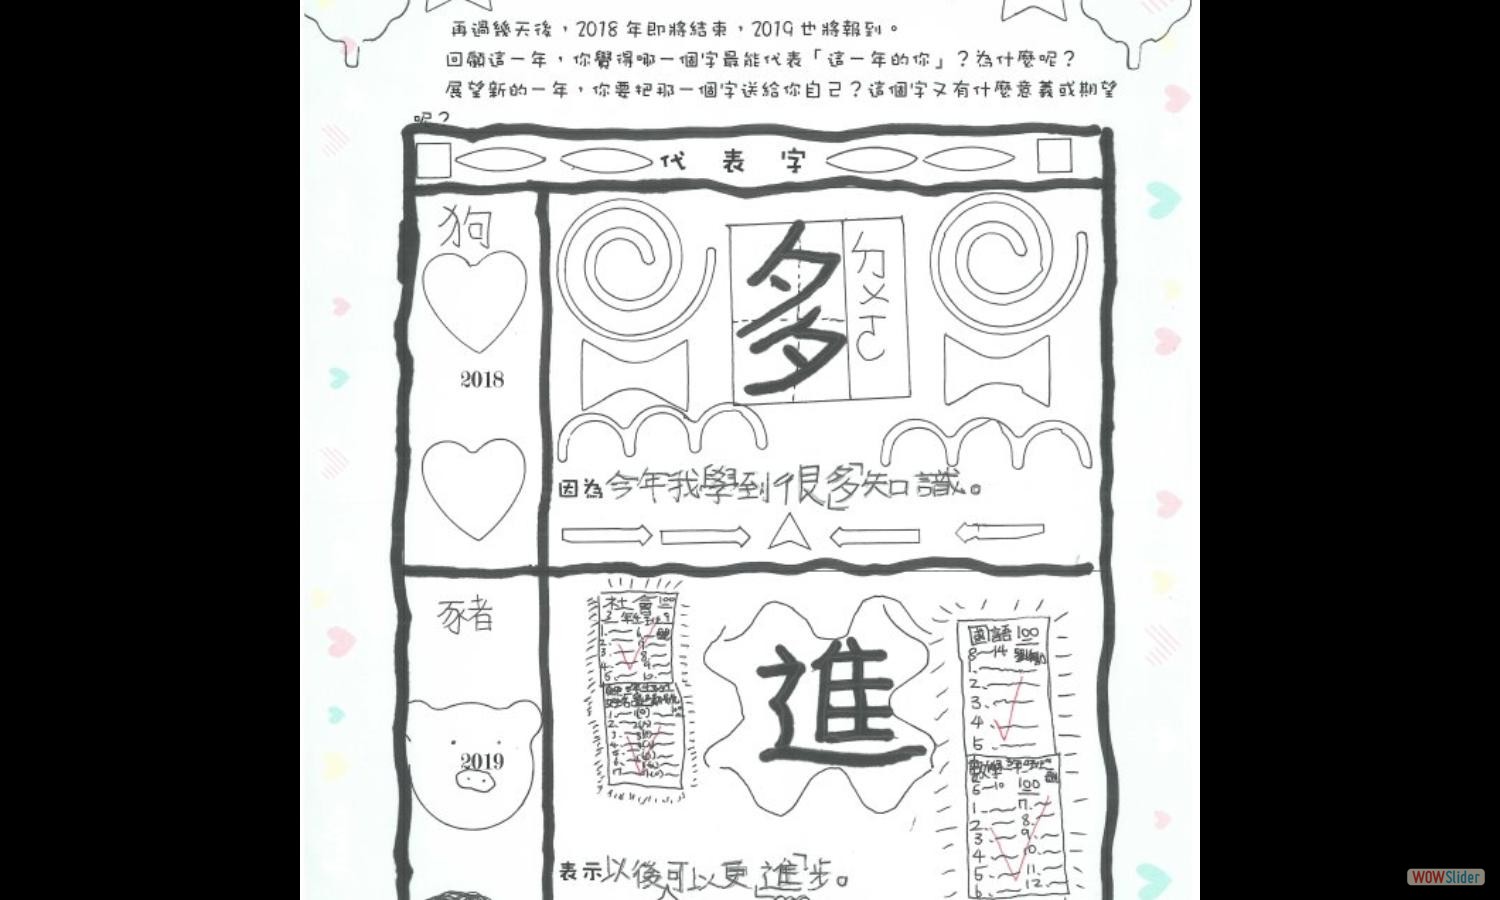 再過幾天後，2018 年即將結束，2019 也將報到。
回顧這一年，你覺得哪一個字最能代表「這一年的你」？為什麼呢？
展望新的一年，你要把那一個字送給你自己？這個字又有什麼意義或期望
呢？
代 表 字
狗
2018
多
ㄉㄨㄛ
因為今年我學到很「多」知識。
豬
2019
社會 100
1.
2.
3.
4.
5.
進
國語 100
8~14
1.
2.
3.
4.
5.
數學
6~10 100
1. 7.
2. 8.
3. 9.
4. 10.
5. 11.
6. 12.
表示以後可以更「進」步。
WOWSlider